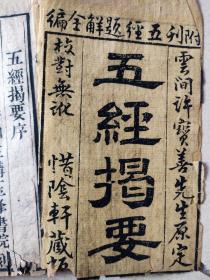 附刊五經題解全編
雲間許寶善先生原定
五經揭要
校對無訛 惜陰軒藏板
五經揭要序
書院